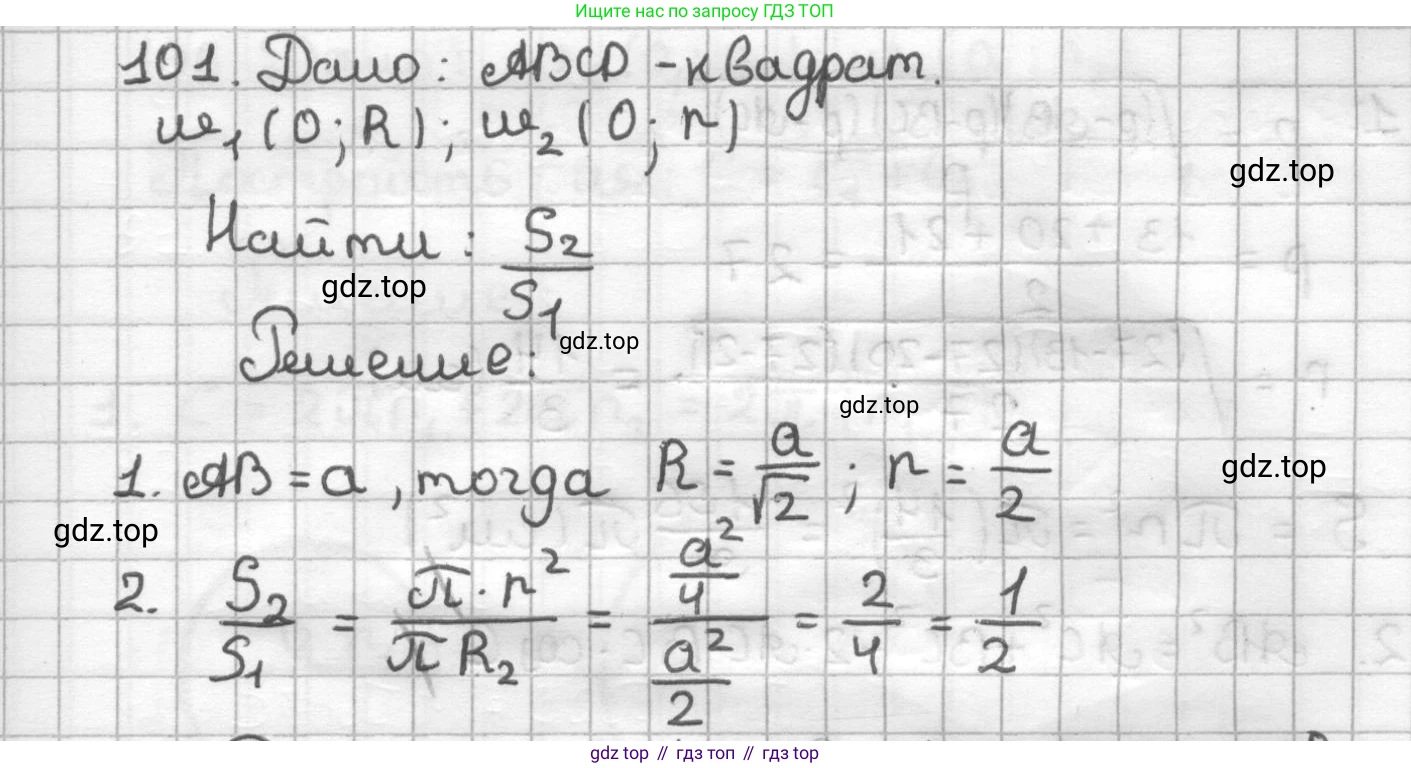 Ищите нас по запросу ГДЗ ТОП
101. Дано: ABCD - квадрат.
ω₁(O; R); ω₂(O; r)
gdz.top
Найти: S₂/S₁
gdz.top
gdz.top
Решение:
gdz.top
1. AB = a, тогда R = a/√2; r = a/2
gdz.top
gdz.top
2. S₂/S₁ = π·r²/πR₂ = (a²/4)/(a²/2) = 2/4 = 1/2
gdz top // гдз топ // гдз top